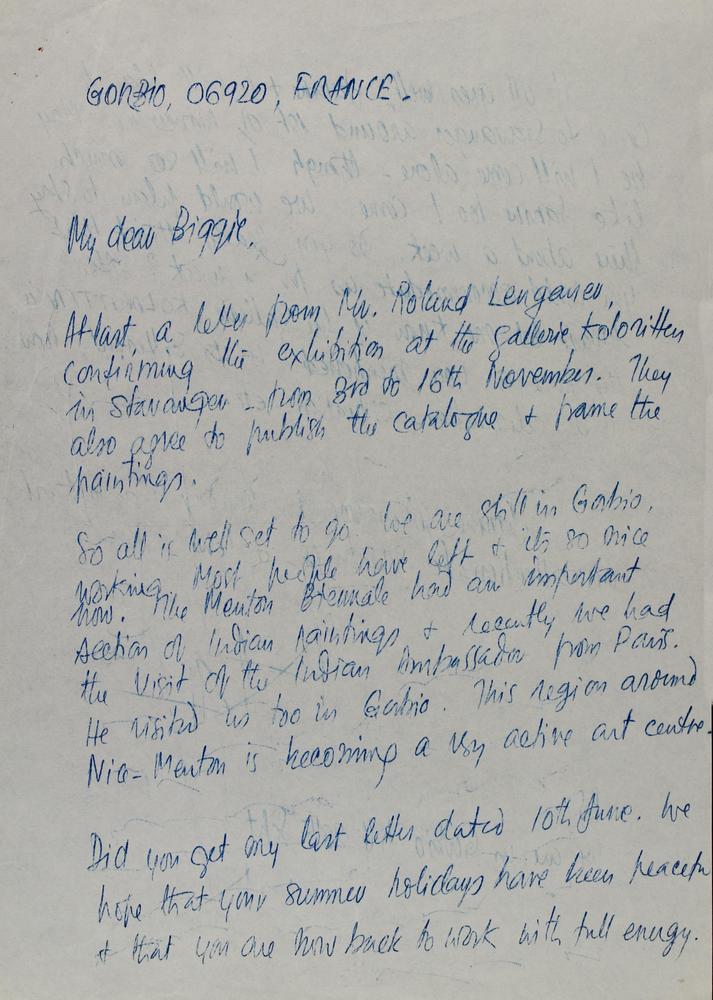 GORBIO, 06920, FRANCE -
My dear Biggie,
At last, a letter from Mr. Roland Lengauer,
confirming the exhibition at the gallerie Koloritten
in Stavanger - from 3rd to 16th November. They
also agree to publish the catalogue & frame the
paintings.
So all is well set to go. We are still in Gorbio,
working. Most people have left & its so nice
now. The Menton Biennale had an important
section of Indian paintings & recently we had
the visit of the Indian Ambassador from Paris.
He visited us too in Gorbio. This region around
Nice-Menton is becoming a very active art centre.
Did you get my last letter dated 10th June. We
hope that your summer holidays have been peaceful
& that you are now back to work with full energy.